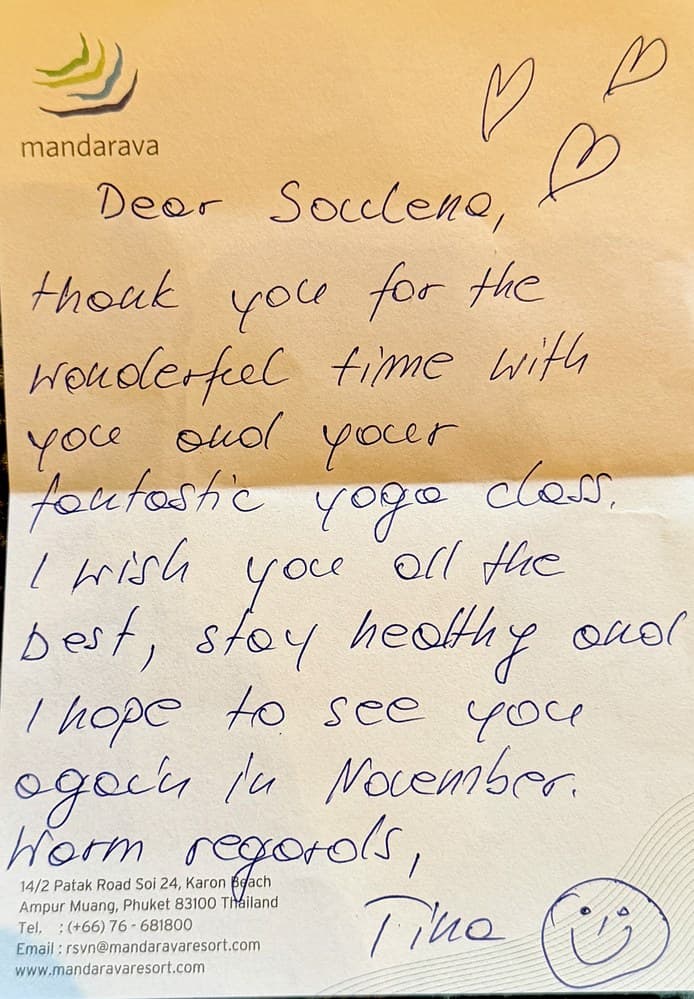 mandarava
Dear Soulena,
thank you for the
wonderful time with
you and your
fantastic yoga class.
I wish you all the
best, stay healthy and
I hope to see you
again in November.
Warm regards,
14/2 Patak Road Soi 24, Karon Beach
Ampur Muang, Phuket 83100 Thailand
Tel. : (+66) 76 - 681800
Email : rsvn@mandaravaresort.com
www.mandaravaresort.com
Tina